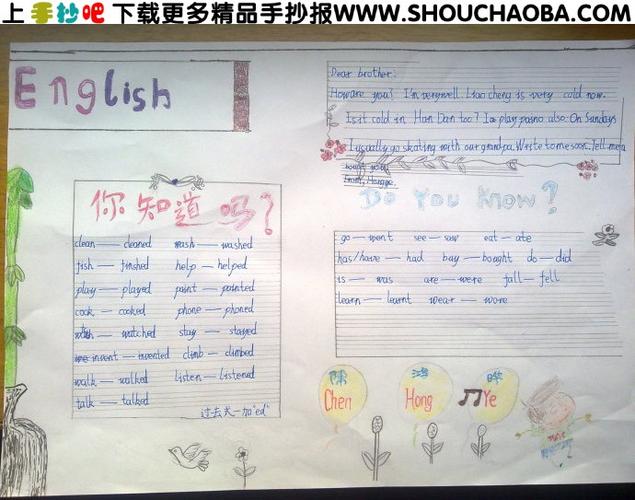 上手抄吧 下载更多精品手抄报WWW.SHOUCHAOBA.COM
English
Dear brother:
How are you? I'm very well. Liao cheng is very cold now.
Is it cold in Han Dan too? I play paino also. On Sundays
I usually go skating with our grandpa. Write to me soon. Tell me
你知道吗?
clean — cleaned wash — washed
fish — fished help — helped
play — played paint — painted
cook — cooked phone — phoned
watch — watched stay — stayed
invent — invented climb — climbed
walk — walked listen — listened
talk — talked
过去式一加"ed"
DO YOU KNOW?
go — went see — saw eat — ate
has/have — had buy — bought do — did
is — was are — were fall — fell
learn — learnt wear — wore
陈 鸿 晔
Chen Hong Ye